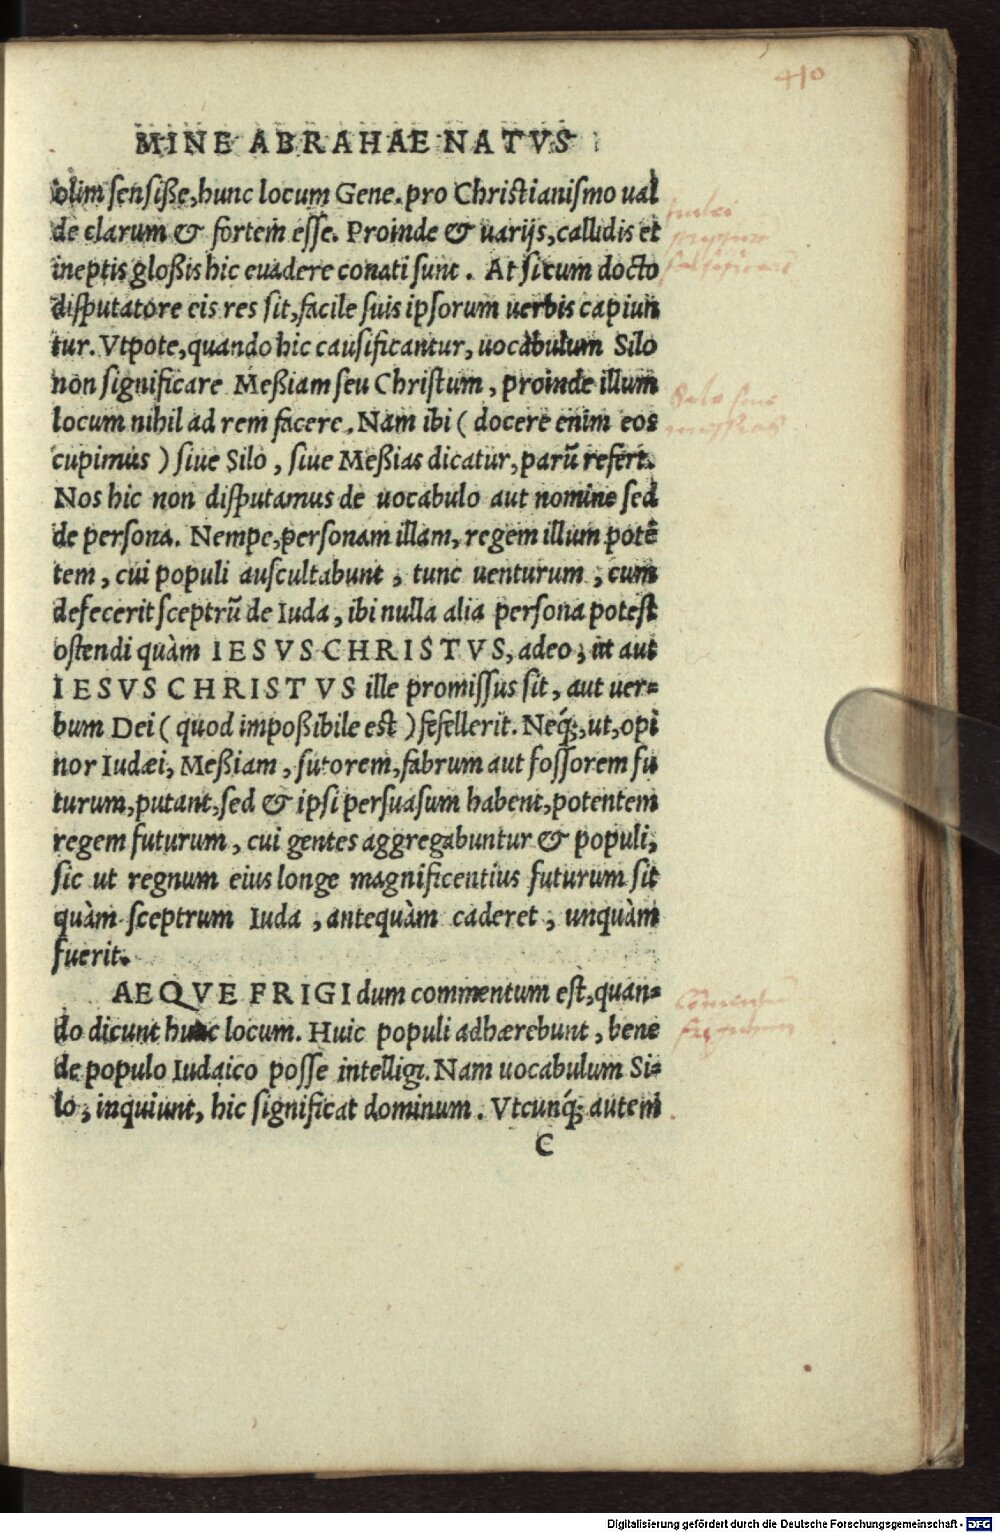 410
MINE ABRAHAE NATVS
olim sensiße, hunc locum Gene. pro Christianismo ual
de clarum & fortem esse. Proinde & uarijs, callidis et
ineptis gloßis hic euadere conati sunt. At si cum docto
disputatore eis res sit, facile suis ipsorum uerbis capiun
tur. Vtpote, quando hic causificantur, uocabulum Silo
non significare Meßiam seu Christum, proinde illum
locum nihil ad rem facere. Nam ibi ( docere enim eos
cupimus ) siue Silo, siue Meßias dicatur, parū refert.
Nos hic non disputamus de uocabulo aut nomine sed
de persona. Nempe, personam illam, regem illum potē
tem, cui populi auscultabunt, tunc uenturum, cum
defecerit sceptrū de Iuda, ibi nulla alia persona potest
ostendi quàm IESVS CHRISTVS, adeo, ut aut
IESVS CHRISTVS ille promissus sit, aut uer=
bum Dei ( quod impoßibile est ) fefellerit. Neq́;, ut, opi
nor Iudæi, Meßiam, sutorem, fabrum aut fossorem fu
turum, putant, sed & ipsi persuasum habent, potentem
regem futurum, cui gentes aggregabuntur & populi,
sic ut regnum eius longe magnificentius futurum sit
quàm sceptrum Iuda, antequàm caderet, unquàm
fuerit.
AEQVE FRIGIdum commentum est, quan=
do dicunt hunc locum. Huic populi adhærebunt, bene
de populo Iudaico posse intelligi. Nam uocabulum Si=
lo, inquiunt, hic significat dominum. Vtcunq́; autem
C
Silo siue
messias
Digitalisierung gefördert durch die Deutsche Forschungsgemeinschaft - DFG